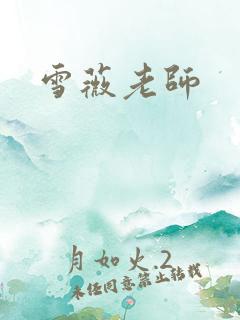 雪薇老師
月如火.2
未经同意禁止转载